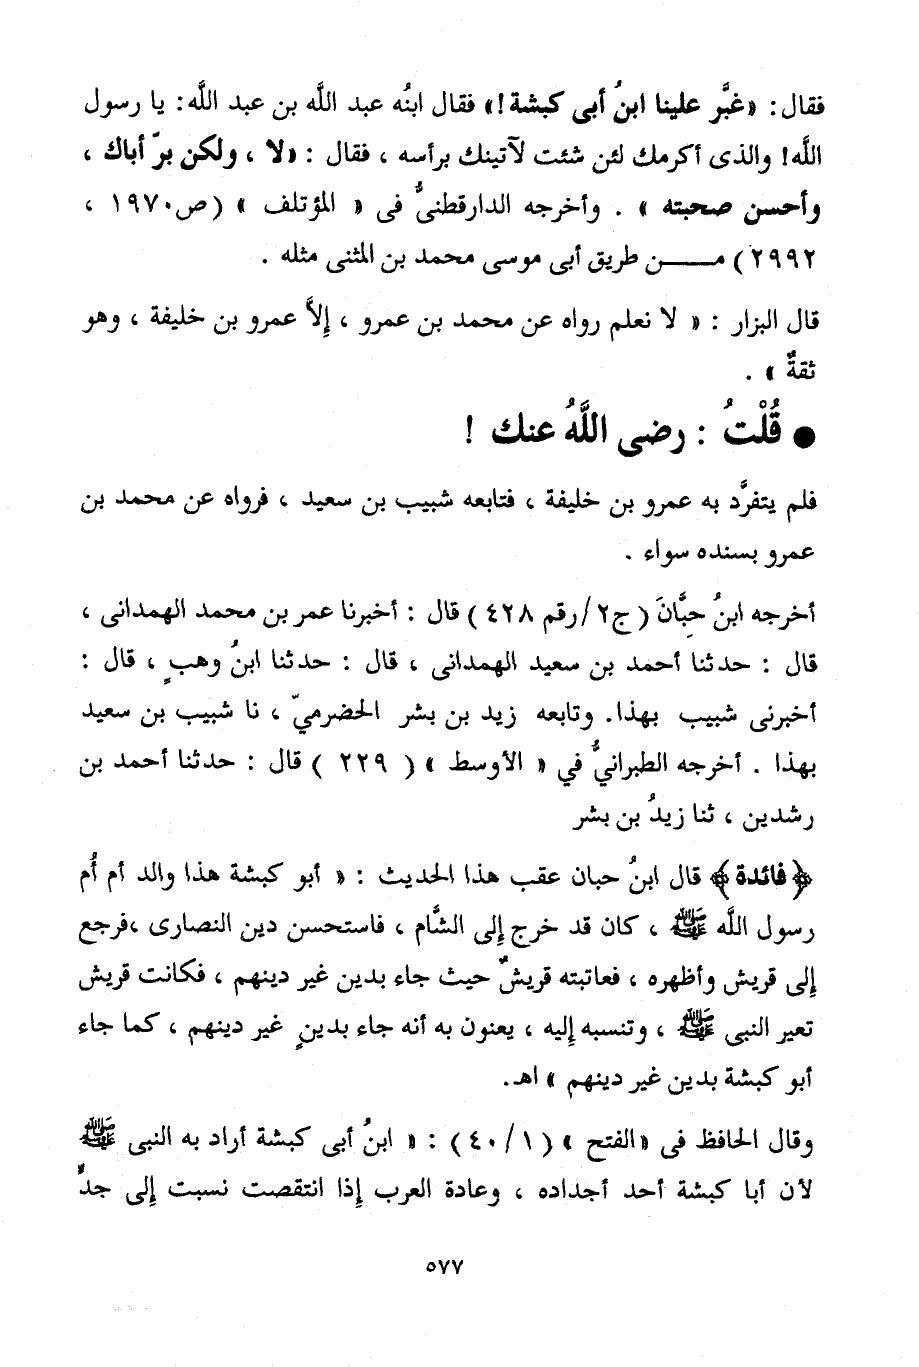 فقال: «غبَّر علينا ابنُ أبى كبشة!» فقال ابنُه عبد اللَّه بن عبد اللَّه: يا رسول
اللَّه! والذى أكرمك لئن شئت لآتينك برأسه ، فقال : «لا ، ولكن برّ أباك ،
وأحسن صحبته » . وأخرجه الدارقطنىُّ فى « المؤتلف » (ص١٩٧٠ ،
٢٩٩٢) مـــــن طريق أبى موسى محمد بن المثنى مثله .
قال البزار : « لا نعلم رواه عن محمد بن عمرو ، إلاَّ عمرو بن خليفة ، وهو
ثقةٌ » .
● قُلْتُ : رضى اللَّهُ عنك !
فلم يتفرَّد به عمرو بن خليفة ، فتابعه شبيب بن سعيد ، فرواه عن محمد بن
عمرو بسنده سواء .
أخرجه ابنُ حِبَّانَ ( ج٢/رقم ٤٢٨ ) قال : أخبرنا عمر بن محمد الهمدانى ،
قال : حدثنا أحمد بن سعيد الهمدانى ، قال : حدثنا ابنُ وهبٍ ، قال :
أخبرنى شبيب بهذا. وتابعه زيد بن بشر الحضرميّ ، نا شبيب بن سعيد
بهذا . أخرجه الطبرانيُّ في « الأوسط » ( ٢٢٩ ) قال : حدثنا أحمد بن
رشدين ، ثنا زيدُ بن بشر
﴿فائدة﴾ قال ابنُ حبان عقب هذا الحديث : « أبو كبشة هذا والد أم أُم
رسول اللَّه ﷺ ، كان قد خرج إلى الشَّام ، فاستحسن دين النصارى ،فرجع
إلى قريش وأظهره ، فعاتبته قريشٌ حيث جاء بدين غير دينهم ، فكانت قريش
تعير النبى ﷺ ، وتنسبه إليه ، يعنون به أنه جاء بدينٍ غير دينهم ، كما جاء
أبو كبشة بدين غير دينهم » اهـ.
وقال الحافظ فى «الفتح » (٤٠/١) : « ابنُ أبى كبشة أراد به النبى ﷺ
لأن أبا كبشة أحد أجداده ، وعادة العرب إذا انتقصت نسبت إلى جدٍّ
٥٧٧